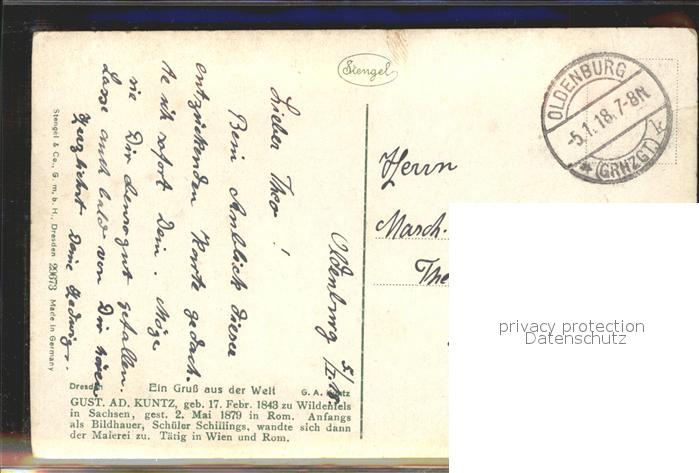 Stengel
OLDENBURG
-5.1.18.7-8N
* (GRHZGT.)
Oldenburg 5/
Lieber Theo!
Beim Anblick dieser
entzückenden Karte gedach-
te ich sofort Dein. Möge
sie Dir ebensogut gefallen.
Lasse auch bald von Dir hören
Herzlichst Deine Hedwig.
Herrn
Masch.
The
privacy protection
Datenschutz
Stengel & Co., G. m. b. H., Dresden 29673 Made in Germany
Dresden Ein Gruß aus der Welt G. A. Kuntz
GUST. AD. KUNTZ, geb. 17. Febr. 1843 zu Wildenfels
in Sachsen, gest. 2. Mai 1879 in Rom. Anfangs
als Bildhauer, Schüler Schillings, wandte sich dann
der Malerei zu. Tätig in Wien und Rom.